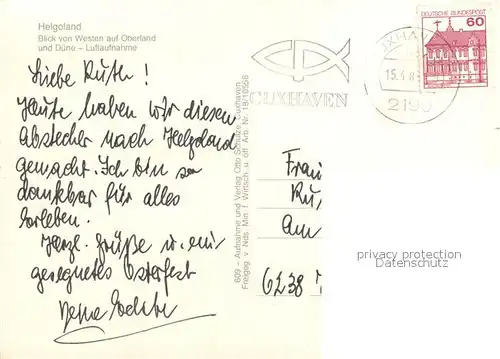 Helgoland
Blick von Westen auf Oberland
und Düne – Luftaufnahme
Liebe Ruth!
Heute haben wir diesen
Abstecher nach Helgoland
gemacht. Ich bin so
dankbar für alles
Erleben.
Herzl. Grüße u. ein
gesegnetes Osterfest
609 – Aufnahme und Verlag Otto Schulze, Cuxhaven
Freigeg. v. Nds. Min. f. Wirtsch. u. öff. Arb. Nr. 18/10558
CUXHAVEN
UXHA
15.4.8
2190
DEUTSCHE BUNDESPOST
60
Frau
Ru
Am
6238
privacy protection
Datenschutz